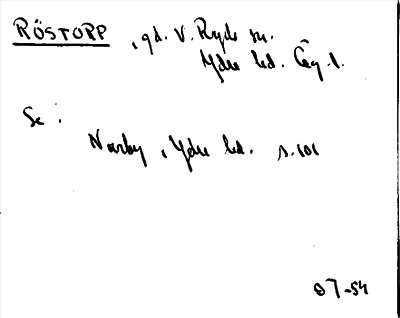 RÖSTORP, gd. V. Ryds sn.
Ydre hd. Ög. l.
Se:
Norrby, Ydre hd. s. 101
07-54